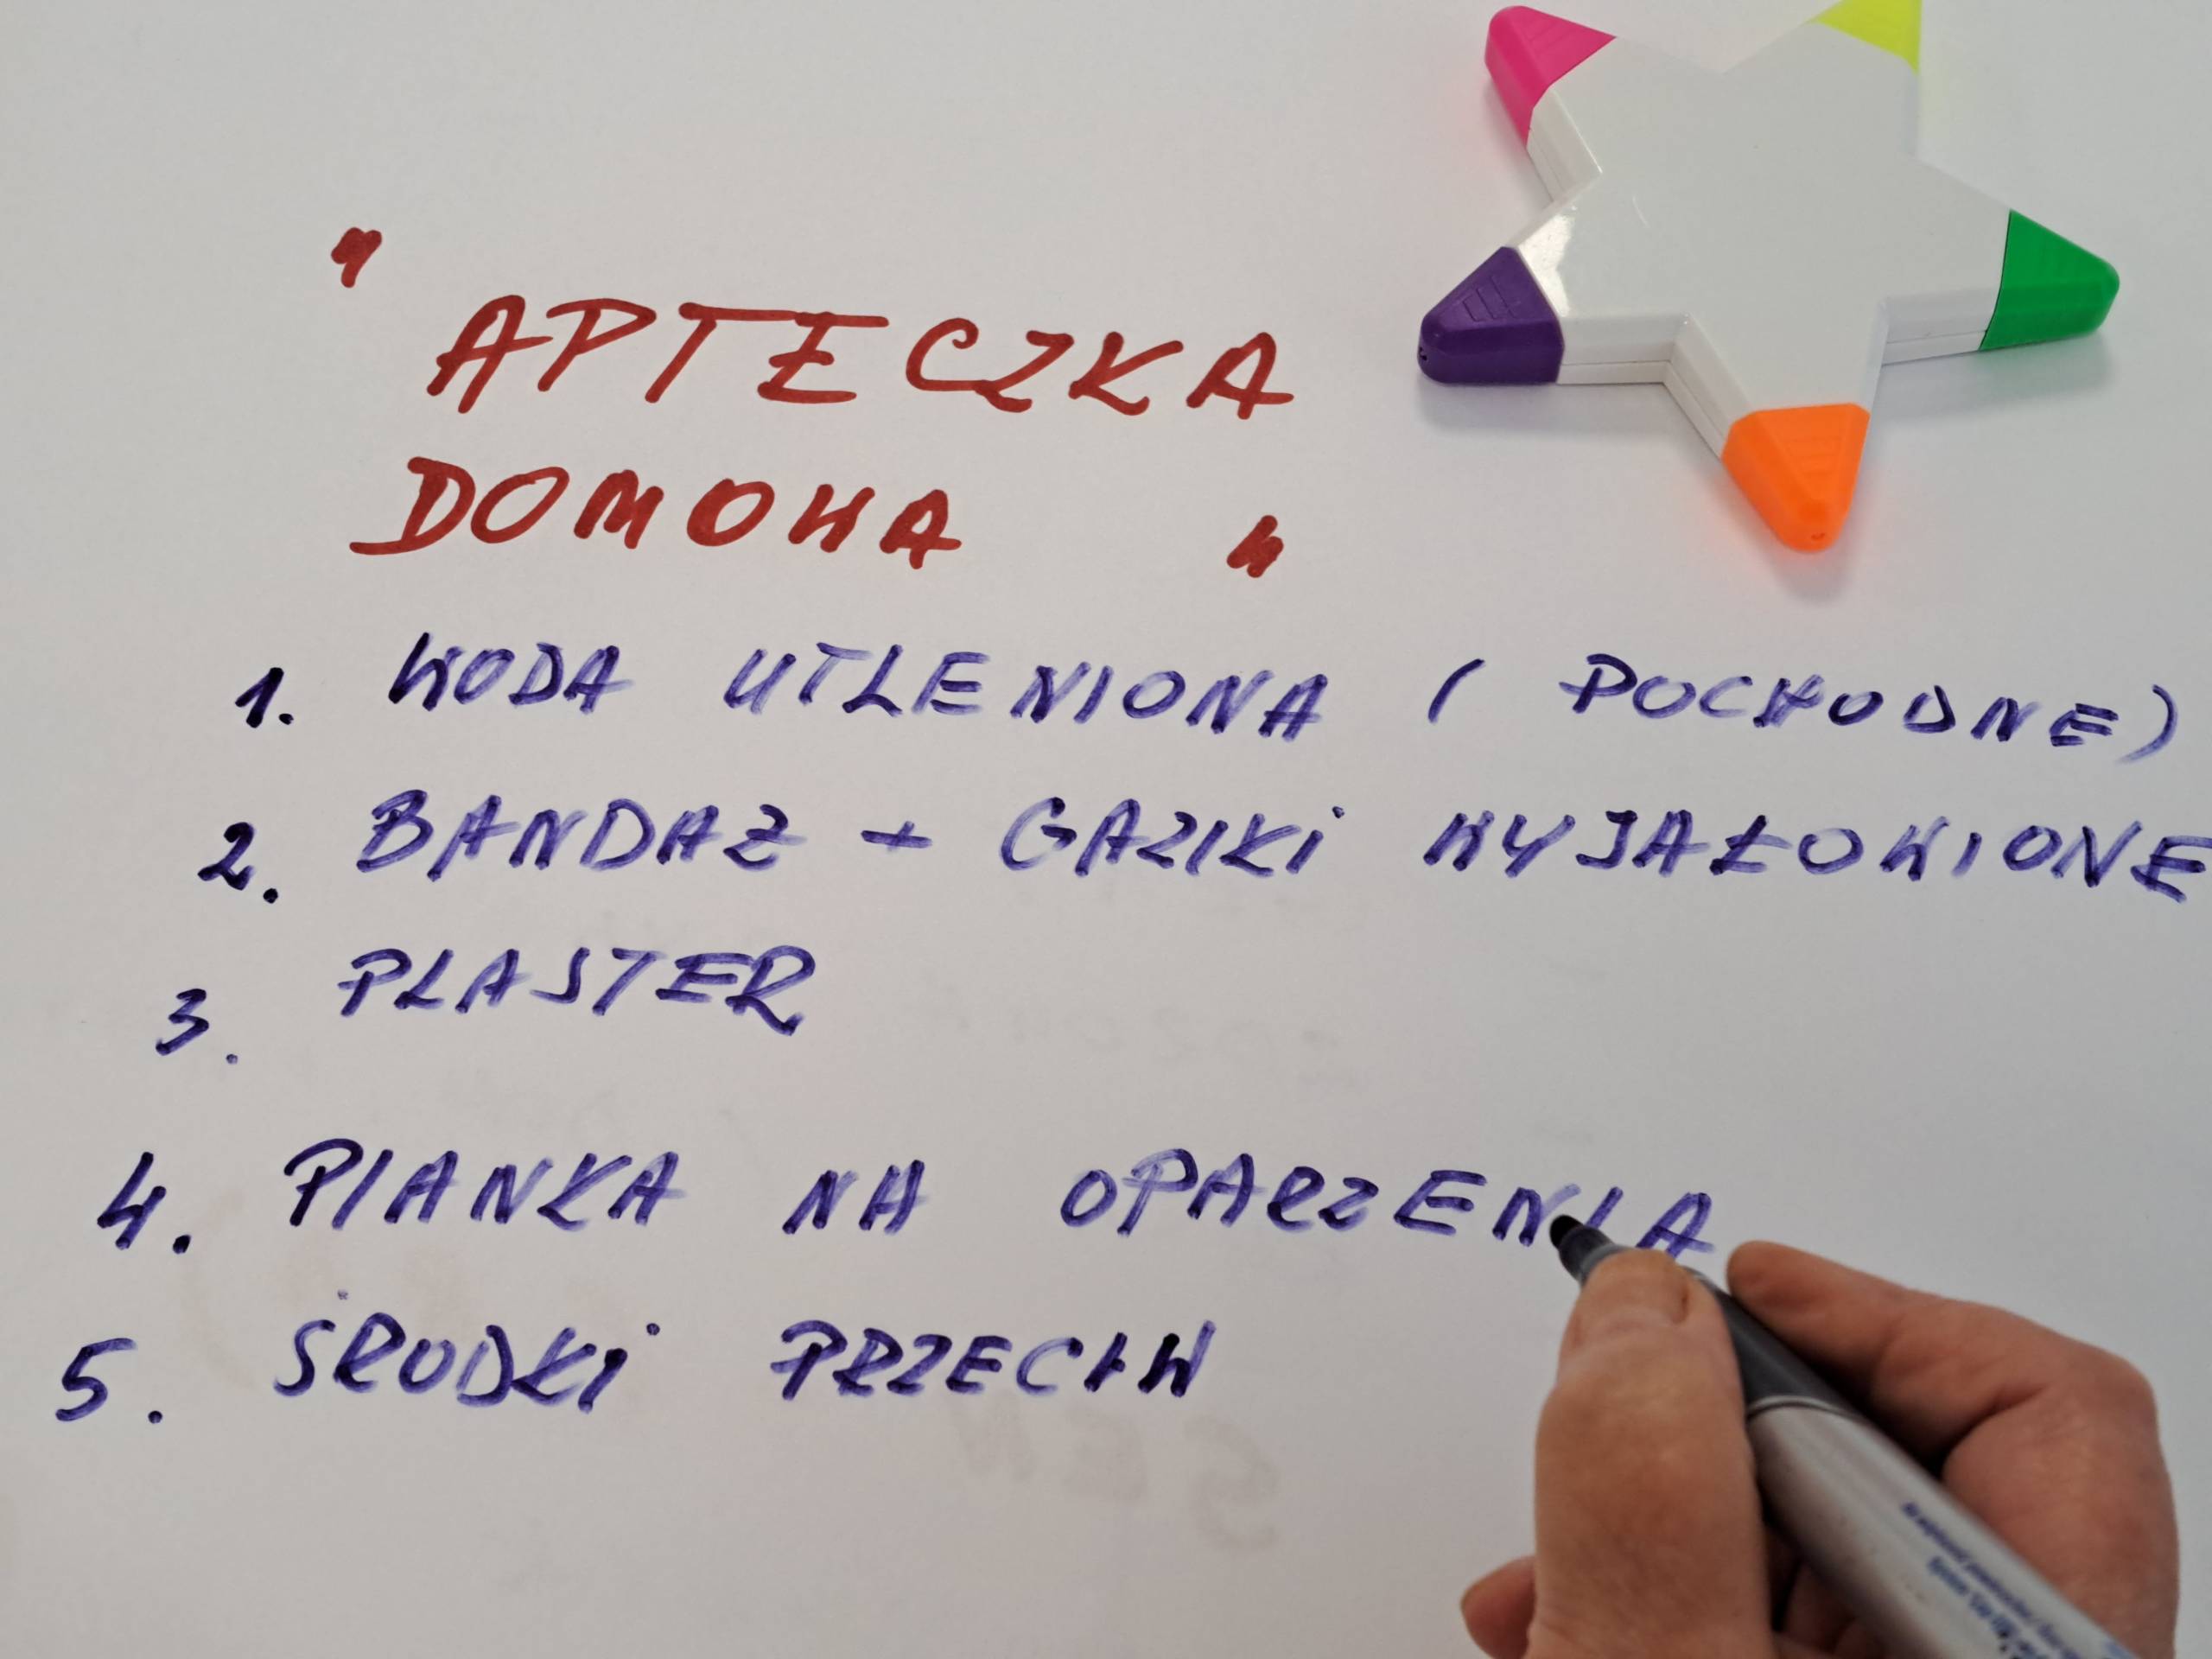 " APTECZKA
DOMOWA "
1. WODA UTLENIONA ( POCHODNE )
2. BANDAZ + GAZIKI WYJAŁOWIONE
3. PLASTER
4. PIANKA NA OPARZENIA
5. ŚRODKI PRZECIW